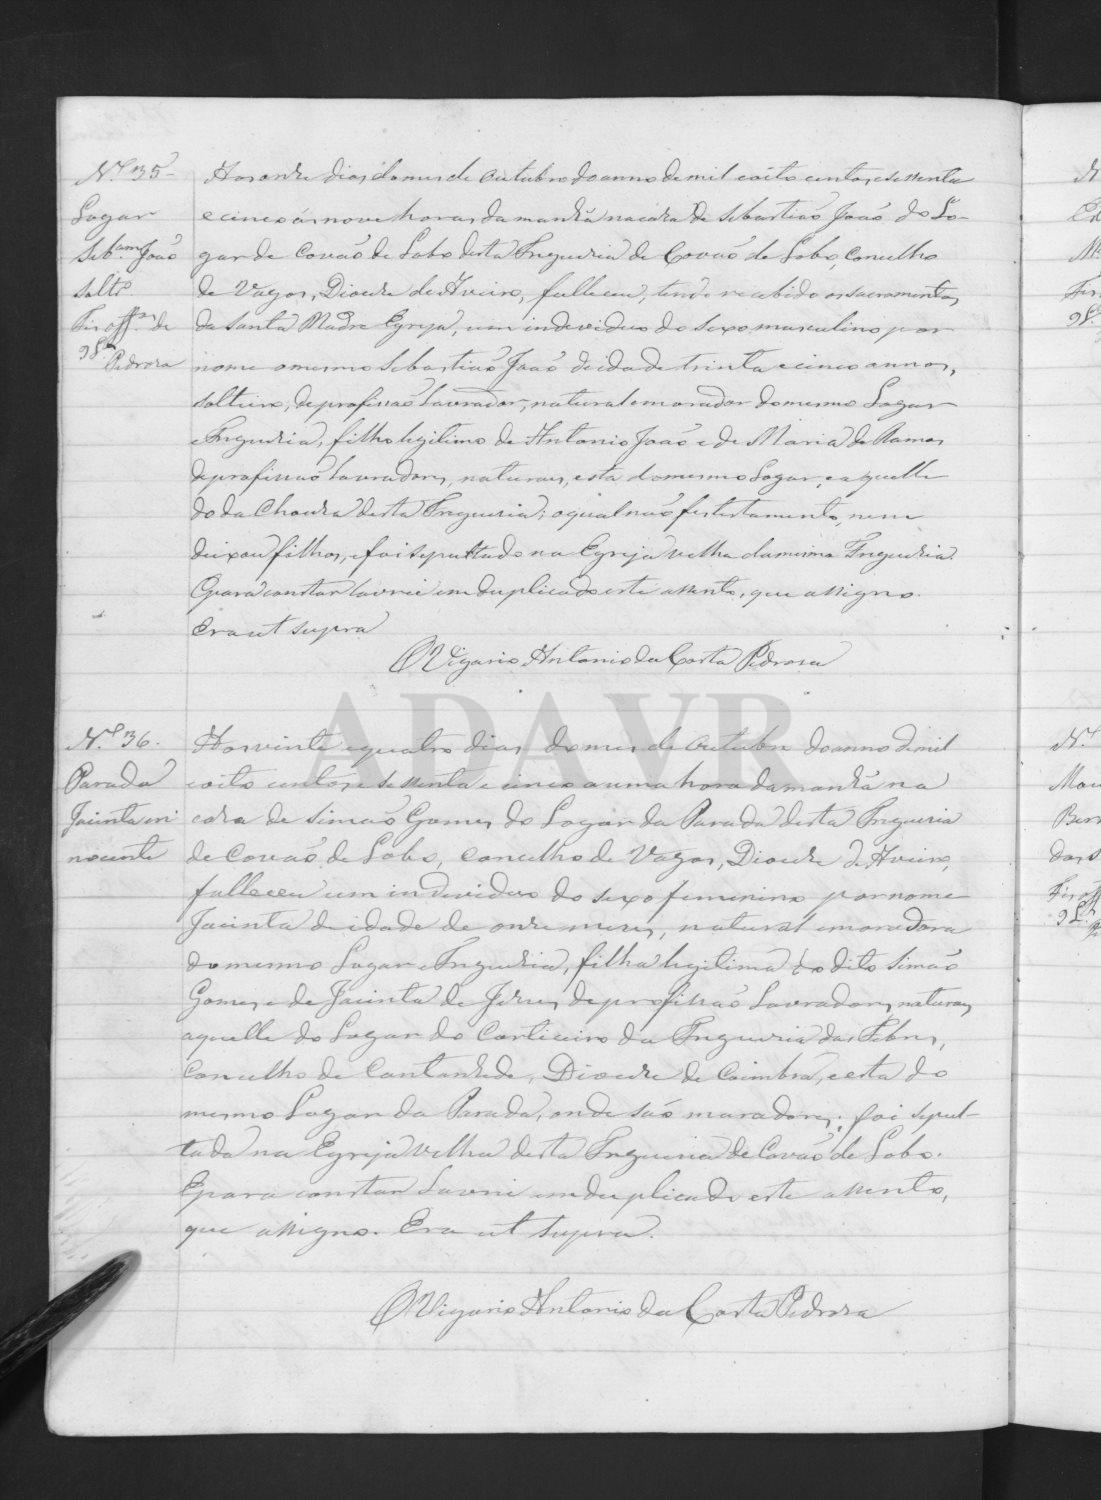 N.º 35-
Logar
Seb.am João
soltr.º
Fiz off.os de
98.ª
Pedrosa
Aos onze dias do mes de Outubro do anno de mil e oito centos, e sessenta
e cinco ás nove horas da manhã na caza de Sebastião João do Lo-
gar de Covão de Lobo desta Freguezia de Covão de Lobo, Concelho
de Vagos, Diocese de Aveiro, falleceu, tendo recebido os sacramentos
da Santa Madre Egreja, um individuo do sexo masculino por
nome o mesmo Sebastião João de idade trinta e cinco annos,
solteiro, de profissão Lavrador, natural e morador do mesmo Logar
e Freguezia, filho legitimo de Antonio João e de Maria de Ramos
de profissão Lavradores, naturaes, esta do mesmo Logar, e aquelle
do da Choura desta Freguezia; o qual não fes testamento, nem
deixou filhos, e foi sepultado na Egreja velha da mesma Freguezia.
E para constar lavrei em duplicado este assento, que assigno.
Era ut supra
O Vigario Antonio da Costa Pedrosa
ADAVR
N.º 36.
Parada
Jacinta in
nocente
Aos vinte e quatro dias do mes de Outubro do anno de mil
e oito centos, e sessenta e cinco a uma hora da manhã na
caza de Simão Gomes do Logar da Parada desta Freguezia
de Covão de Lobo, Concelho de Vagos, Diocese de Aveiro,
falleceu um individuo do sexo feminino por nome
Jacinta de idade de onze meses, natural e moradora
do mesmo Logar e Freguezia, filha legitima do dito Simão
Gomes e de Jacinta de Jesus, de profissão Lavradores, naturaes,
aquelle do Logar do Corticeiro da Freguezia das Febres,
Concelho de Cantanhede, Diocese de Coimbra, e esta do
mesmo Logar da Parada, onde são moradores; foi sepul-
tada na Egreja velha desta Freguezia de Covão de Lobo.
E para constar Lavrei em duplicado este assento,
que assigno. Era ut supra.
O Vigario Antonio da Costa Pedrosa